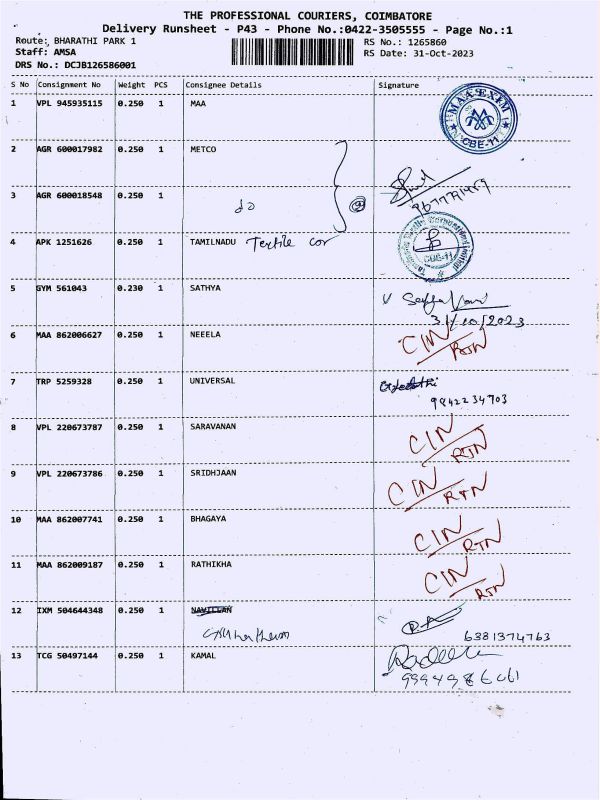 THE PROFESSIONAL COURIERS, COIMBATORE
Delivery Runsheet - P43 - Phone No.:0422-3505555 - Page No.:1
Route: BHARATHI PARK 1 RS No.: 1265860
Staff: AMSA RS Date: 31-Oct-2023
DRS No.: DCJB126586001
S No Consignment No Weight PCS Consignee Details Signature
1 VPL 945935115 0.250 1 MAA MAA EXIM CBE-11
2 AGR 600017982 0.250 1 METCO
3 AGR 600018548 0.250 1 do
4 APK 1251626 0.250 1 TAMILNADU Textile cor CBE-11
5 GYM 561043 0.230 1 SATHYA
31/10/2023
6 MAA 862006627 0.250 1 NEEELA CIN/RTN
7 TRP 5259328 0.250 1 UNIVERSAL
9842234703
8 VPL 220673787 0.250 1 SARAVANAN CIN/RTN
9 VPL 220673786 0.250 1 SRIDHJAAN CIN/RTN
10 MAA 862007741 0.250 1 BHAGAYA CIN/RTN
11 MAA 862009187 0.250 1 RATHIKHA CIN/RTN
12 IXM 504644348 0.250 1 NAVILLAN
6381374763
13 TCG 50497144 0.250 1 KAMAL